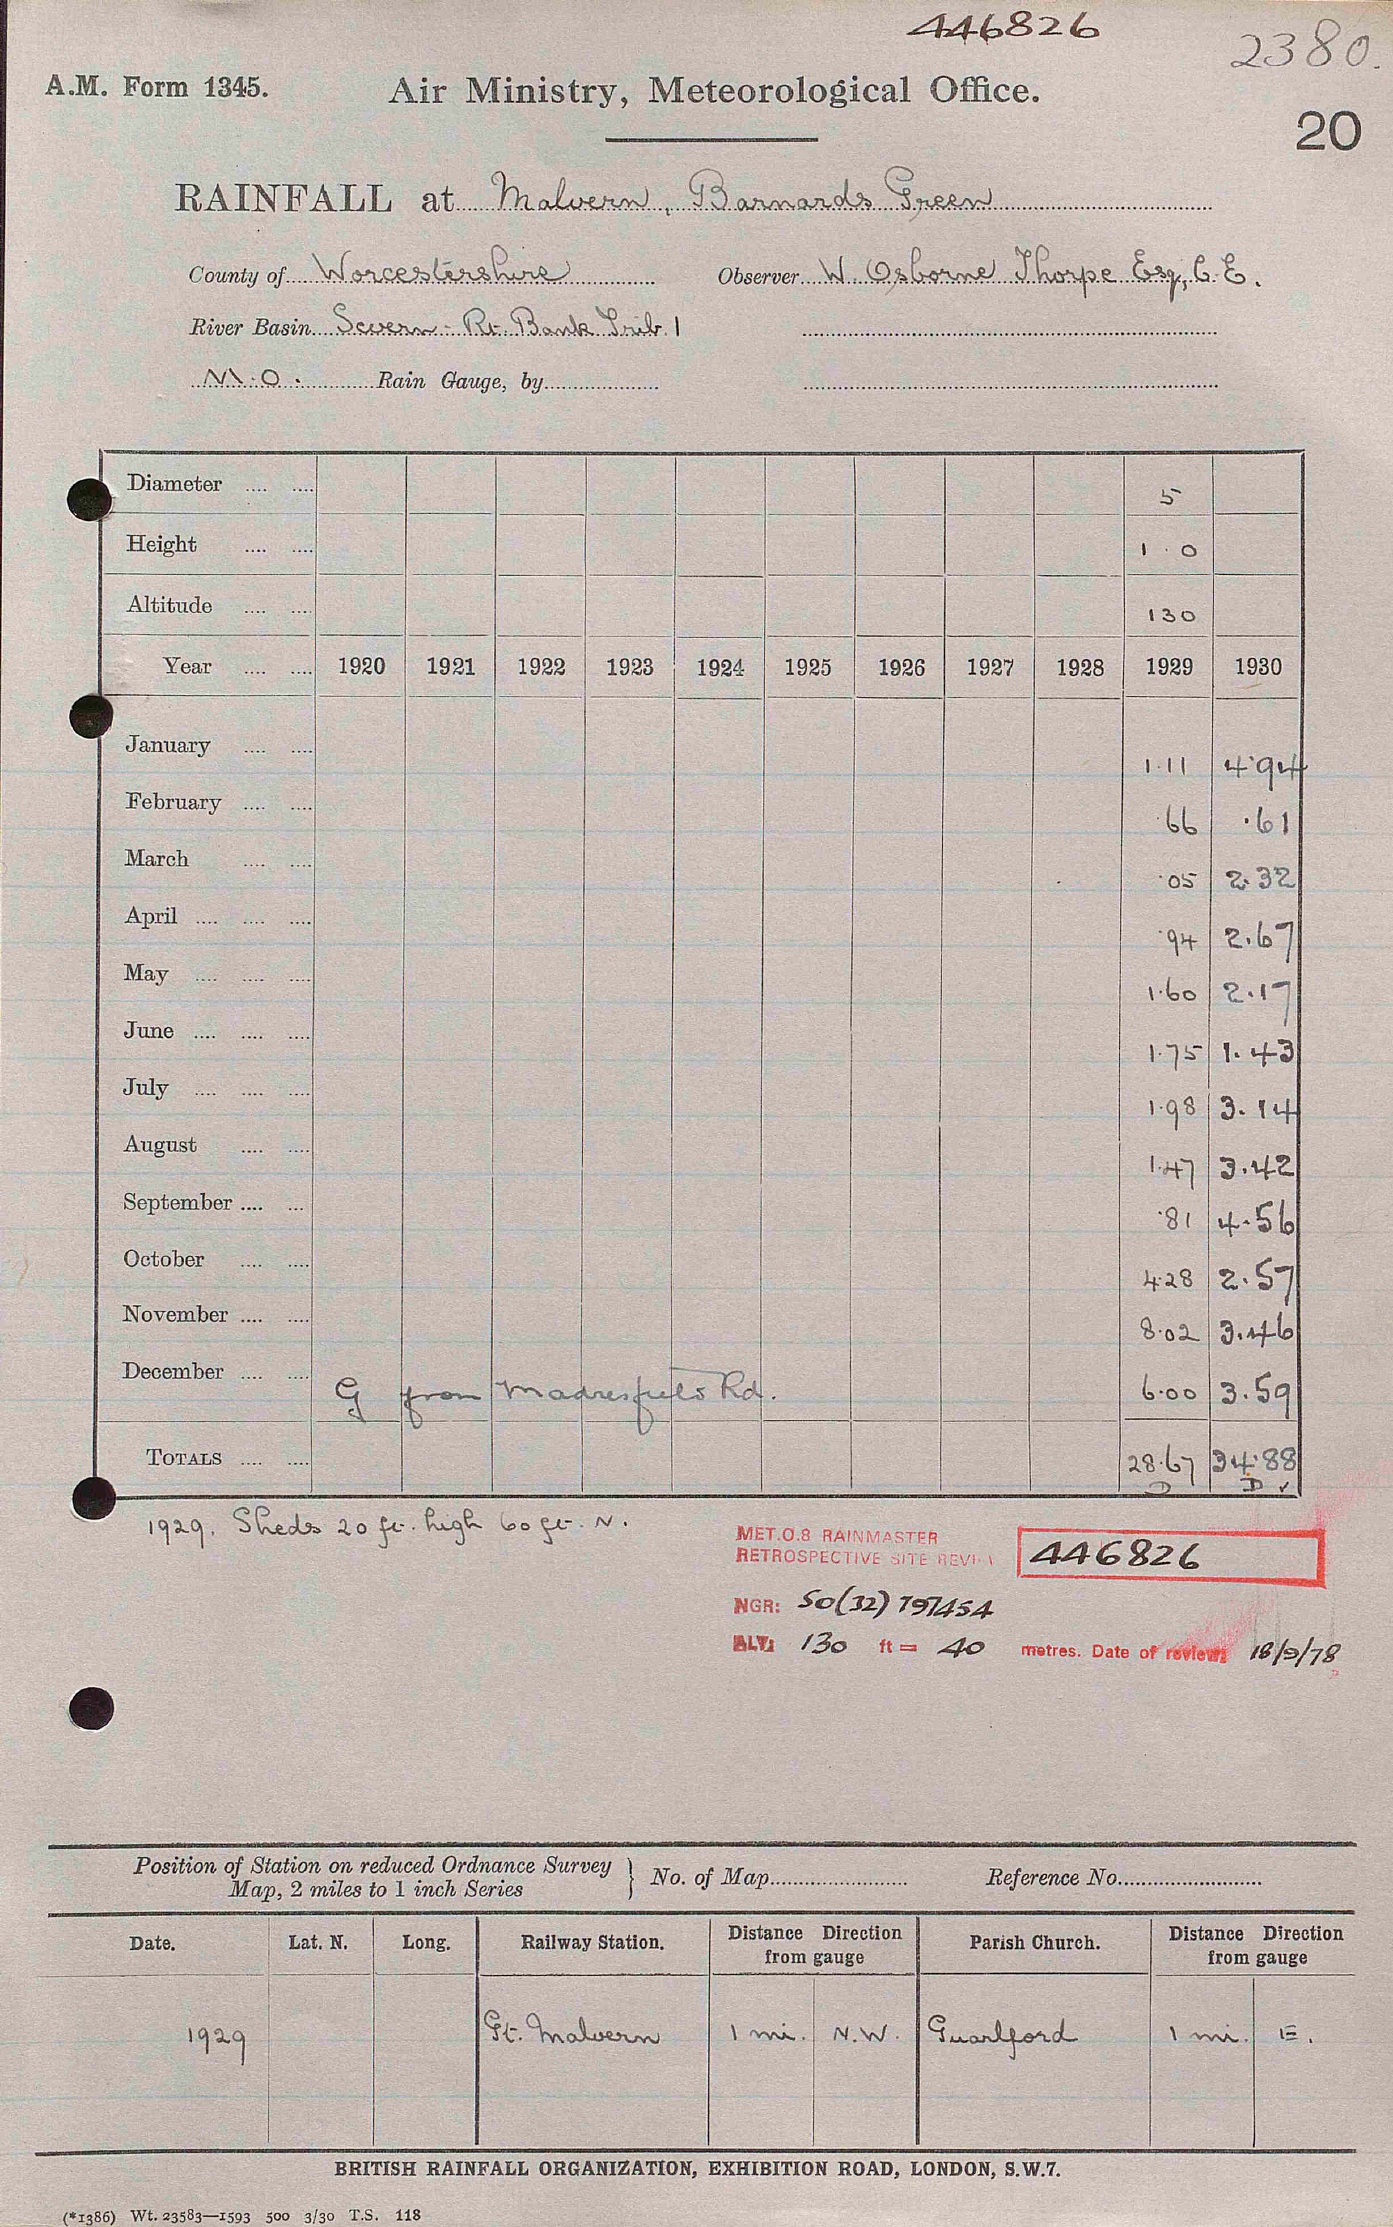 446826
2380.
A.M. Form 1345. Air Ministry, Meteorological Office.
20
RAINFALL at Malvern, Barnards Green
County of Worcestershire Observer W. Osborne Thorpe Esq, C.E.
River Basin Severn - Rt. Bank Trib. 1
M.O. Rain Gauge, by
Diameter .... .... 5
Height .... .... 1 . 0
Altitude .... .... 130
Year .... .... 1920 1921 1922 1923 1924 1925 1926 1927 1928 1929 1930
January .... .... 1.11 4.94
February .... .... .66 .61
March .... .... .05 2.32
April .... .... .... .94 2.67
May .... .... .... 1.60 2.17
June .... .... .... 1.75 1.43
July .... .... .... 1.98 3.14
August .... .... 1.47 3.42
September .... ... .81 4.56
October .... .... 4.28 2.57
November .... .... 8.02 3.46
December .... .... G from Madresfield Rd. 6.00 3.59
TOTALS .... .... 28.67 34.88
D D ✓
1929. Sheds 20 ft. high 60 ft. N.
MET.O.8 RAINMASTER
RETROSPECTIVE SITE REVI 446826
NGR: SO(32) 797454
ALT: 130 ft = 40 metres. Date of review: 18/9/78
Position of Station on reduced Ordnance Survey
Map, 2 miles to 1 inch Series } No. of Map Reference No.
Date. Lat. N. Long. Railway Station. Distance Direction from gauge Parish Church. Distance Direction from gauge
1929 Gt. Malvern 1 mi. N.W. Guarlford 1 mi. E.
BRITISH RAINFALL ORGANIZATION, EXHIBITION ROAD, LONDON, S.W.7.
(*1386) Wt. 23583—1593 500 3/30 T.S. 118